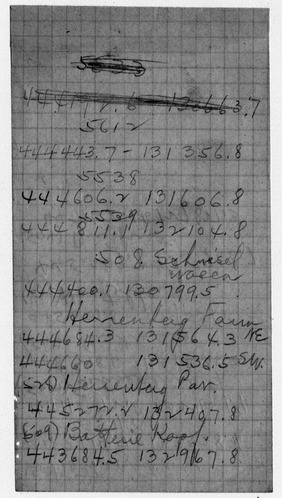 5612
444443.7 - 131356.8
5538
444606.2 131606.8
5539
444811.1 132104.8
508 Schnisel
444400.1 130799.5
Herrenberg Farm
444684.3 131564.3 NE
444660 131536.5 SW.
(52) Herrenberg Pav.
445272.2 132407.8
(509) Batterie Kopf.
443684.5 132967.8